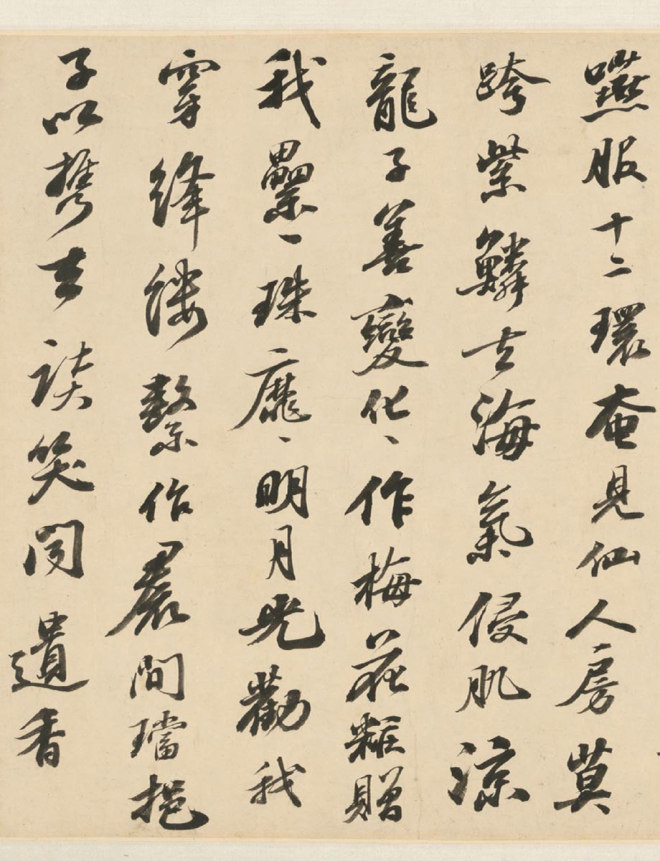 嚥服十二環奄見仙人房莫
跨紫鱗去海氣侵肌涼
龍子善變化、作梅花粧贈
我纍、珠靡、明月光勸我
穿絳縷繫作裾間璫挹
子以攜去談笑聞遺香